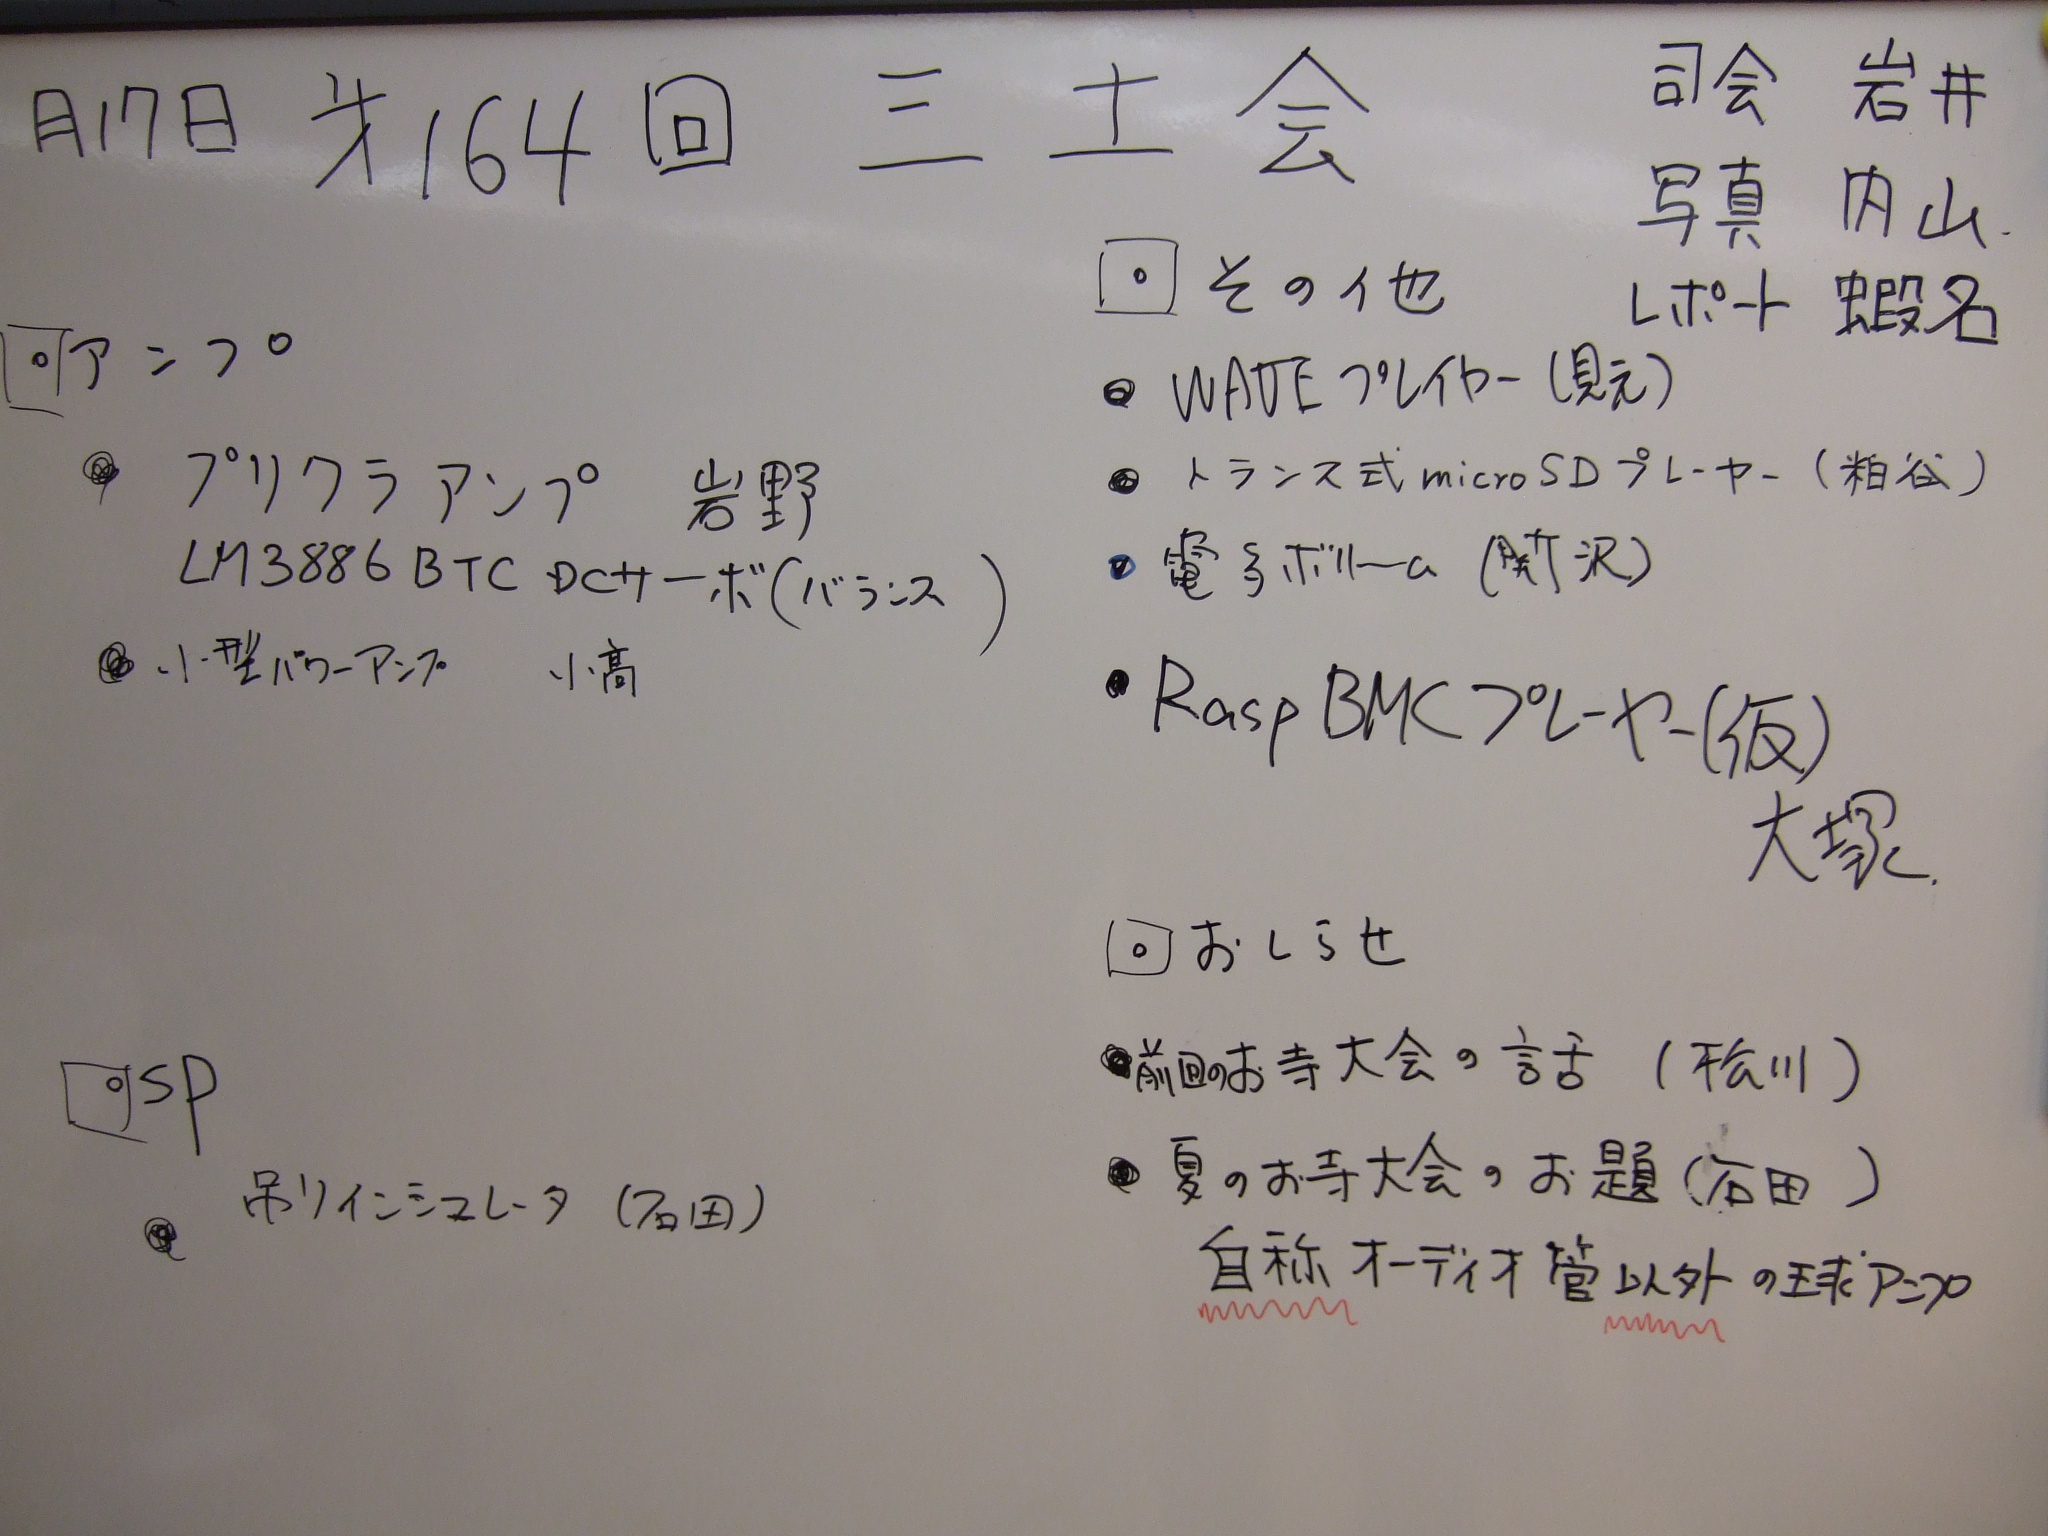 月17日 第164回 三土会
司会 岩井
写真 内山
レポート 蝦名
アンプ
• プリクラアンプ 岩野
LM3886 BTC DCサーボ(バランス )
• 小型パワーアンプ 小高
SP
• 吊リインシュレータ (石田)
その他
• WAVEプレイヤー(見元)
• トランス式microSDプレーヤー(粕谷)
• 電子ボリューム (関沢)
• RaspBMCプレーヤー(仮)
大塚
おしらせ
• 前回のお寺大会の話 (松川)
• 夏のお寺大会のお題 (石田 )
自称オーディオ管以外の球アンプ